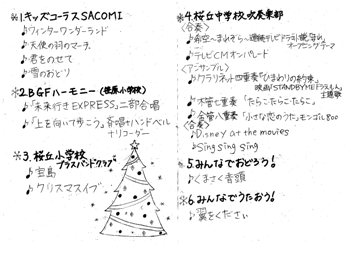 ※1.キッズコーラスSACOMI
♪ウィンターワンダーランド
♪天使の羽のマーチ
♪君をのせて
♪雪のおどり
※2.BGFハーモニー(笹原小学校)
♪「未来行きEXPRESS」二部合唱
♪「上を向いて歩こう」斉唱+ハンドベル
+リコーダー
※3.桜丘小学校
ブラスバンドクラブ
♪宝島
♪クリスマスイブ
※4.桜丘中学校吹奏楽部
〈合奏〉
♪希空~まれぞら~連続テレビドラマ
オープニングテーマ
♪テレビCMオンパレード
〈アンサンブル〉
♪クラリネット四重奏「ひまわりの約束」
映画「STANDBYMEドラえもん」
主題歌
♪木管七重奏「たらこたらこたらこ」
♪金管八重奏「小さな恋のうた」モンゴル800
〈合奏〉
♪Disney at the movies
♪Sing sing sing
※5.みんなでおどろう!
♪くまさく音頭
※6.みんなでうたおう!
♪翼をください